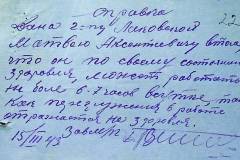 справка
Дана г-ну Лековской
Матвею Аксентьевичу в том
что он по своему состоянию
здоровия, может работать
не боле 6-7 часов в сутке, так
как переутомление в работе
отражается на здоровя.
15/III 43 Завмер